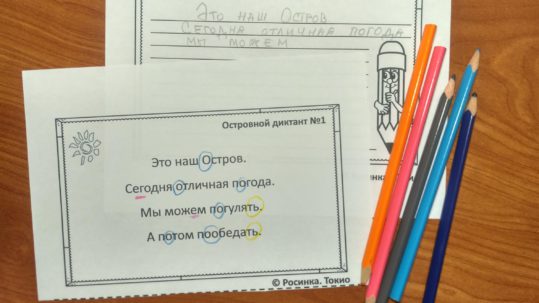 Это наш Остров
Сегодня отличная погода
мы можем
Островной диктант №1
Это наш Остров.
Сегодня отличная погода.
Мы можем погулять.
А потом пообедать.
© Росинка. Токио